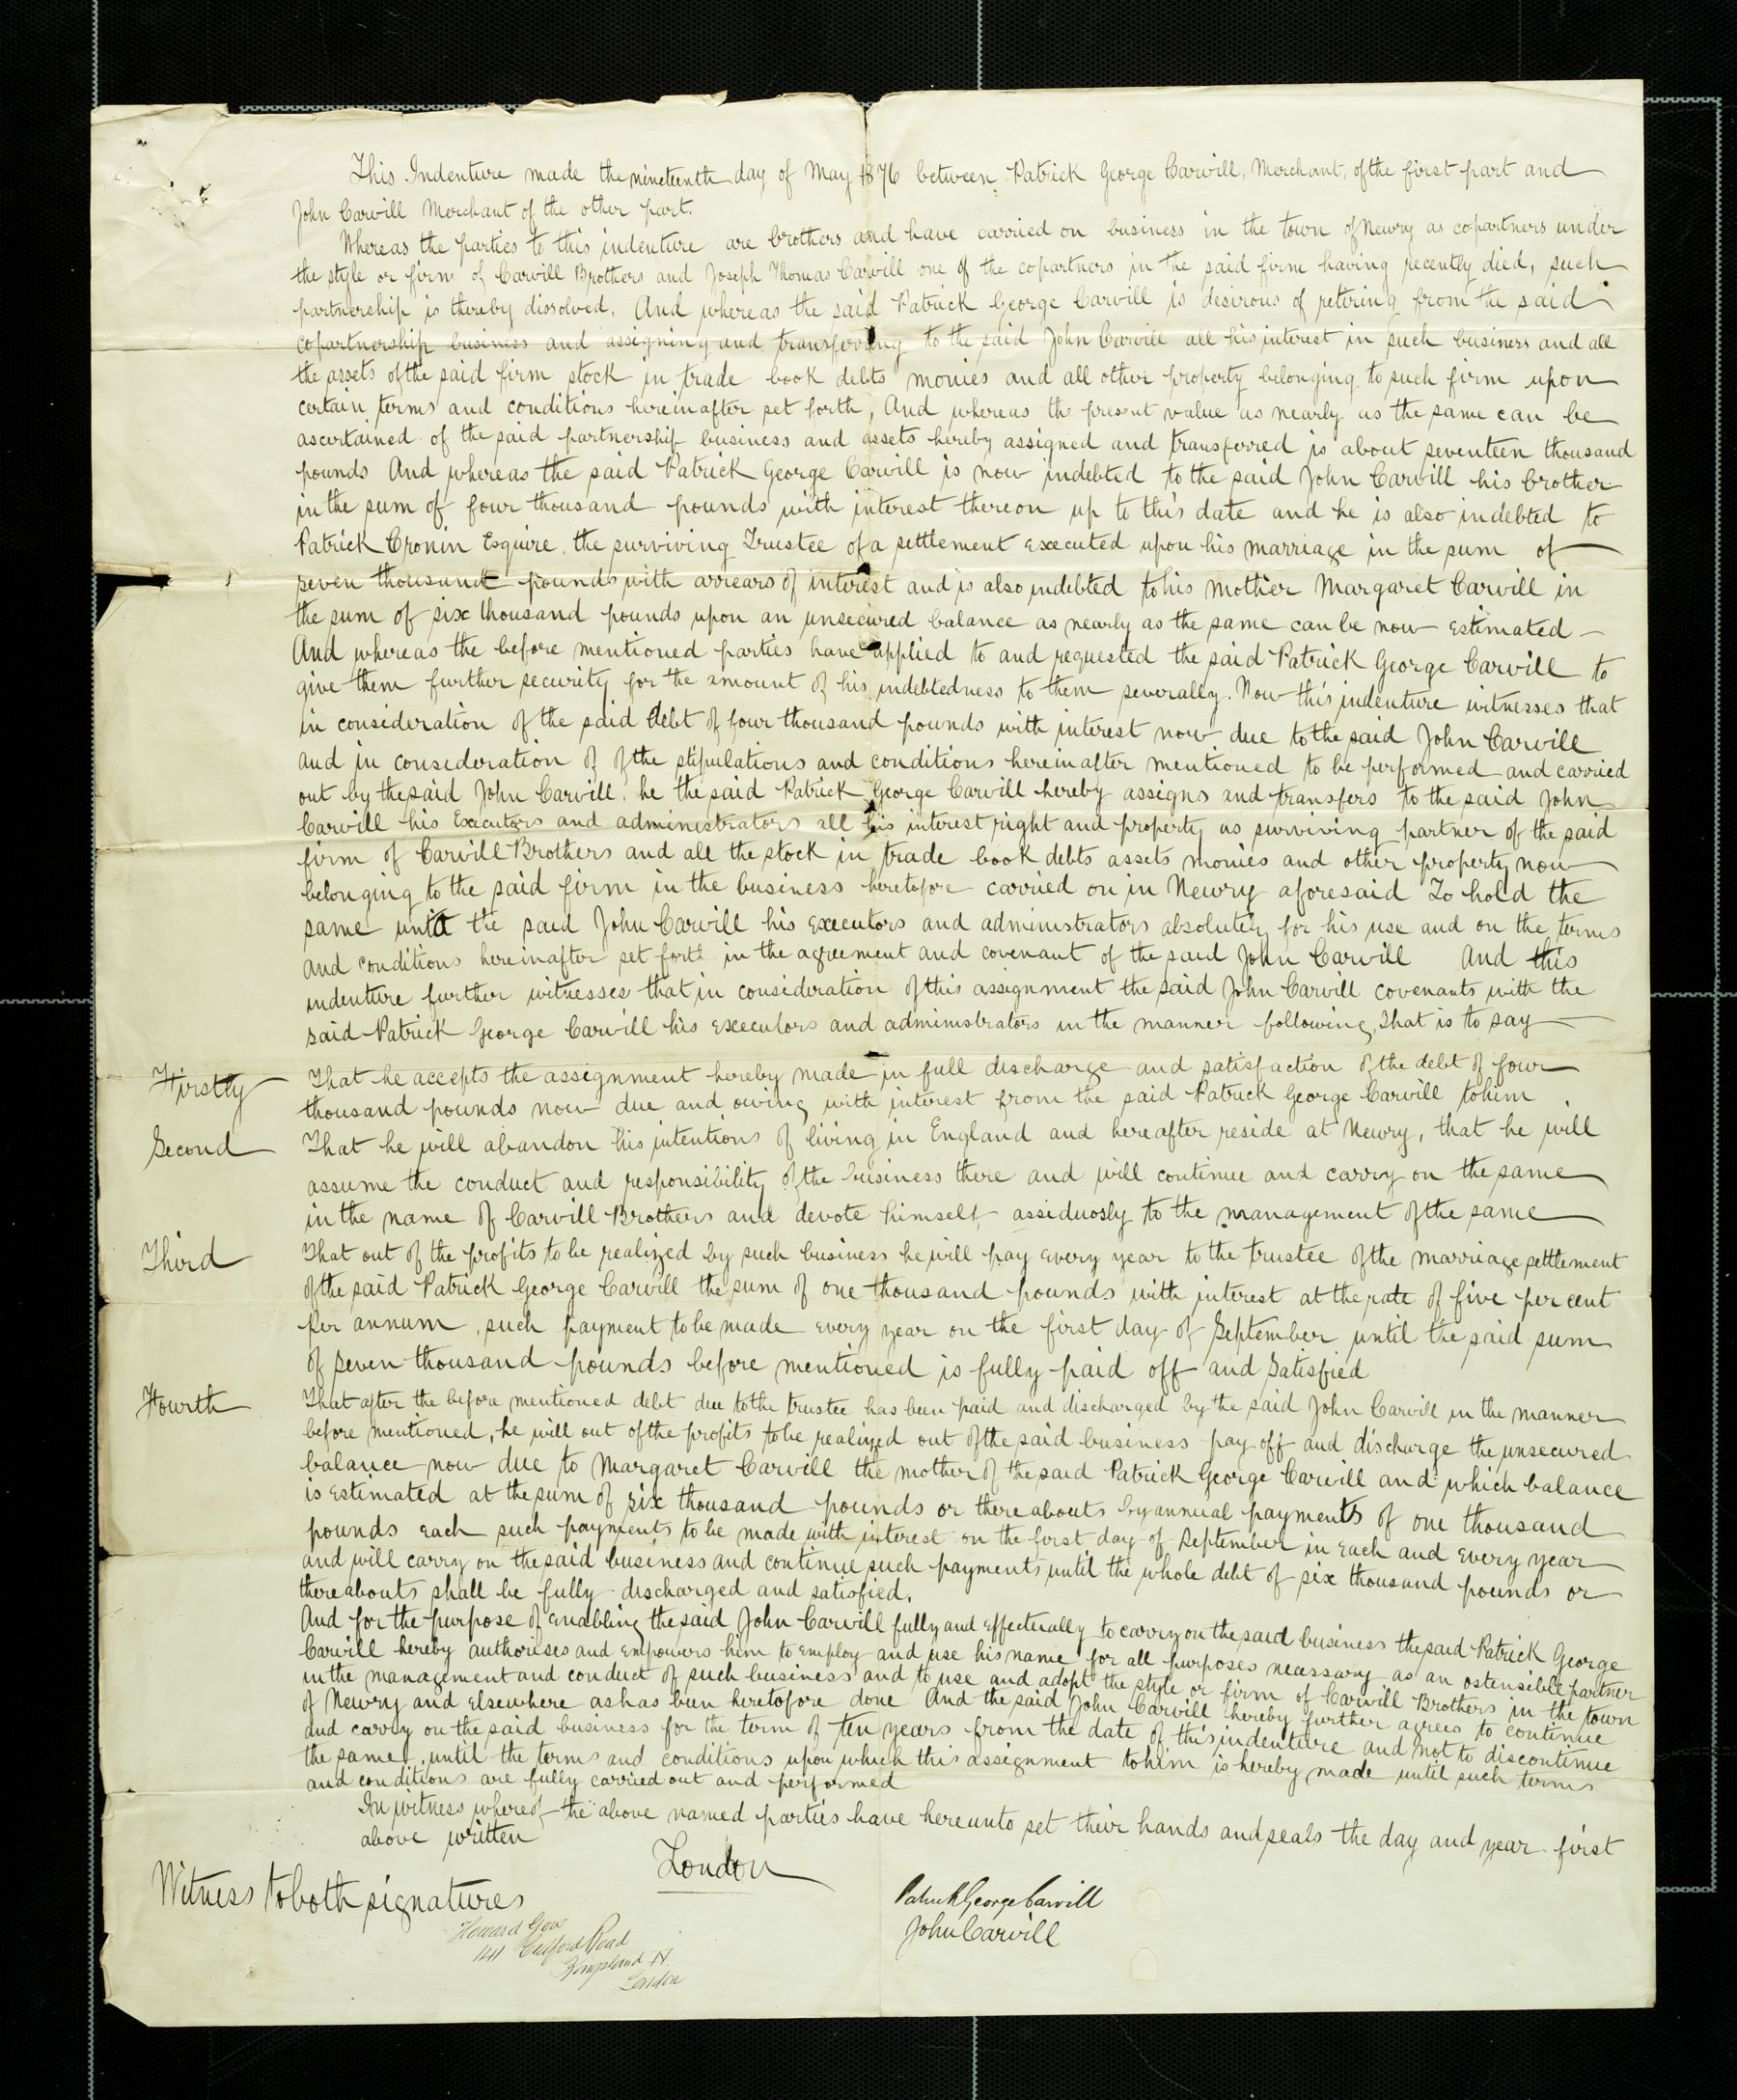 This Indenture made the nineteenth day of May 1876 between Patrick George Carvill, Merchant, of the first part and
John Carvill Merchant of the other part.
Whereas the parties to this indenture are brothers and have carried on business in the town of Newry as copartners under
the style or firm of Carvill Brothers and Joseph Thomas Carvill one of the copartners in the said firm having recently died, such
partnership is thereby dissolved, And whereas the said Patrick George Carvill is desirous of retiring from the said
copartnership business and assigning and transferring to the said John Carvill all his interest in such business and all
the assets of the said firm stock in trade book debts monies and all other property belonging to such firm upon
certain terms and conditions hereinafter set forth, And whereas the present value as nearly as the same can be
ascertained of the said partnership business and assets hereby assigned and transferred is about seventeen thousand
pounds And whereas the said Patrick George Carvill is now indebted to the said John Carvill his brother
in the sum of four thousand pounds with interest thereon up to this date and he is also indebted to
Patrick Cronin Esquire the surviving Trustee of a settlement executed upon his marriage in the sum of
seven thousand pounds with arrears of interest and is also indebted to his Mother Margaret Carvill in
the sum of six thousand pounds upon an unsecured balance as nearly as the same can be now estimated –
And whereas the before mentioned parties have applied to and requested the said Patrick George Carvill to
give them further security for the amount of his indebtedness to them severally. Now this indenture witnesses that
in consideration of the said debt of four thousand pounds with interest now due to the said John Carvill
and in consideration of of the stipulations and conditions hereinafter mentioned to be performed and carried
out by the said John Carvill, he the said Patrick George Carvill hereby assigns and transfers to the said John
Carvill his Executors and administrators all his interest right and property as surviving partner of the said
firm of Carvill Brothers and all the stock in trade book debts assets monies and other property now
belonging to the said firm in the business heretofore carried on in Newry aforesaid To hold the
same until the said John Carvill his executors and administrators absolutely for his use and on the terms
and conditions hereinafter set forth in the agreement and covenant of the said John Carvill And this
indenture further witnesses that in consideration of this assignment the said John Carvill covenants with the
said Patrick George Carvill his executors and administrators in the manner following, That is to say
Firstly That he accepts the assignment hereby made in full discharge and satisfaction of the debt of four
thousand pounds now due and owing with interest from the said Patrick George Carvill to him
Second That he will abandon his intentions of living in England and hereafter reside at Newry, that he will
assume the conduct and responsibility of the business there and will continue and carry on the same
in the name of Carvill Brothers and devote himself assiduosly to the management of the same
Third That out of the profits to be realized by such business he will pay every year to the trustee of the marriage settlement
of the said Patrick George Carvill the sum of one thousand pounds with interest at the rate of five per cent
Per annum, such payment to be made every year on the first day of September until the said sum
of seven thousand pounds before mentioned is fully paid off and satisfied
Fourth That after the before mentioned debt due to the trustee has been paid and discharged by the said John Carvill in the manner
before mentioned, he will out of the profits to be realized out of the said business pay off and discharge the unsecured
balance now due to Margaret Carvill the mother of the said Patrick George Carvill and which balance
is estimated at the sum of six thousand pounds or thereabouts by annual payments of one thousand
pounds each such payments to be made with interest on the first day of September in each and every year
and will carry on the said business and continue such payments until the whole debt of six thousand pounds or
thereabouts shall be fully discharged and satisfied.
And for the purpose of enabling the said John Carvill fully and effectually to carry on the said business the said Patrick George
Carvill hereby authorises and empowers him to employ and use his name for all purposes necessary as an ostensible partner
in the management and conduct of such business and to use and adopt the style or firm of Carvill Brothers in the town
of Newry and elsewhere as has been heretofore done And the said John Carvill hereby further agrees to continue
and carry on the said business for the term of ten years from the date of this indenture and not to discontinue
the same, until the terms and conditions upon which this assignment to him is hereby made until such terms
and conditions are fully carried out and performed
In witness whereof the above named parties have hereunto set their hands and seals the day and year first
above written
London
Witness to both signatures
Patrick George Carvill
John Carvill
Howard Gow
141 Culford Road
Kingsland N
London